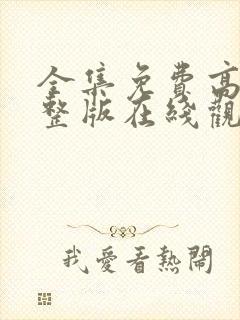 全集免費高
整版在綫觀
我愛看熱鬧